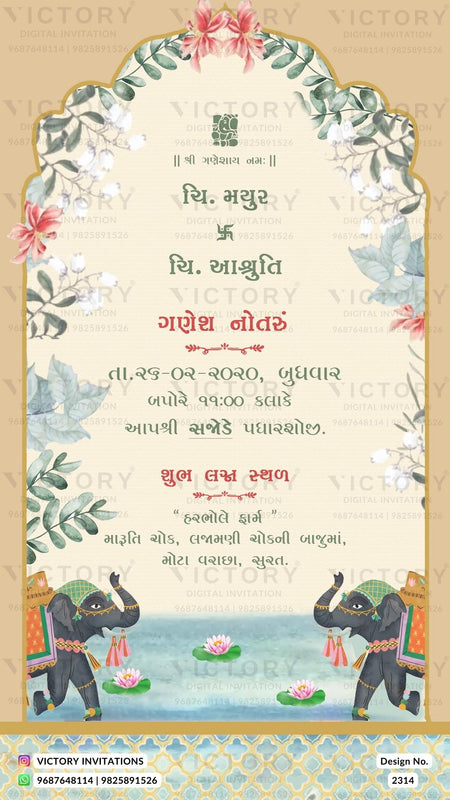 VICTORY
DIGITAL INVITATION
9687648114 | 9825891526
|| શ્રી ગણેશાય નમઃ ||
ચિ. મયુર
卐
ચિ. આશ્રુતિ
ગણેશ નોતરું
તા.૨૬-૦૨-૨૦૨૦, બુધવાર
બપોરે ૧૧:૦૦ કલાકે
આપશ્રી સજોડે પધારશોજી.
શુભ લગ્ન સ્થળ
“ હરભોલે ફાર્મ ”
મારૂતિ ચોક, લજામણી ચોકની બાજુમાં,
મોટા વરાછા, સુરત.
VICTORY INVITATIONS
9687648114 | 9825891526
Design No.
2314